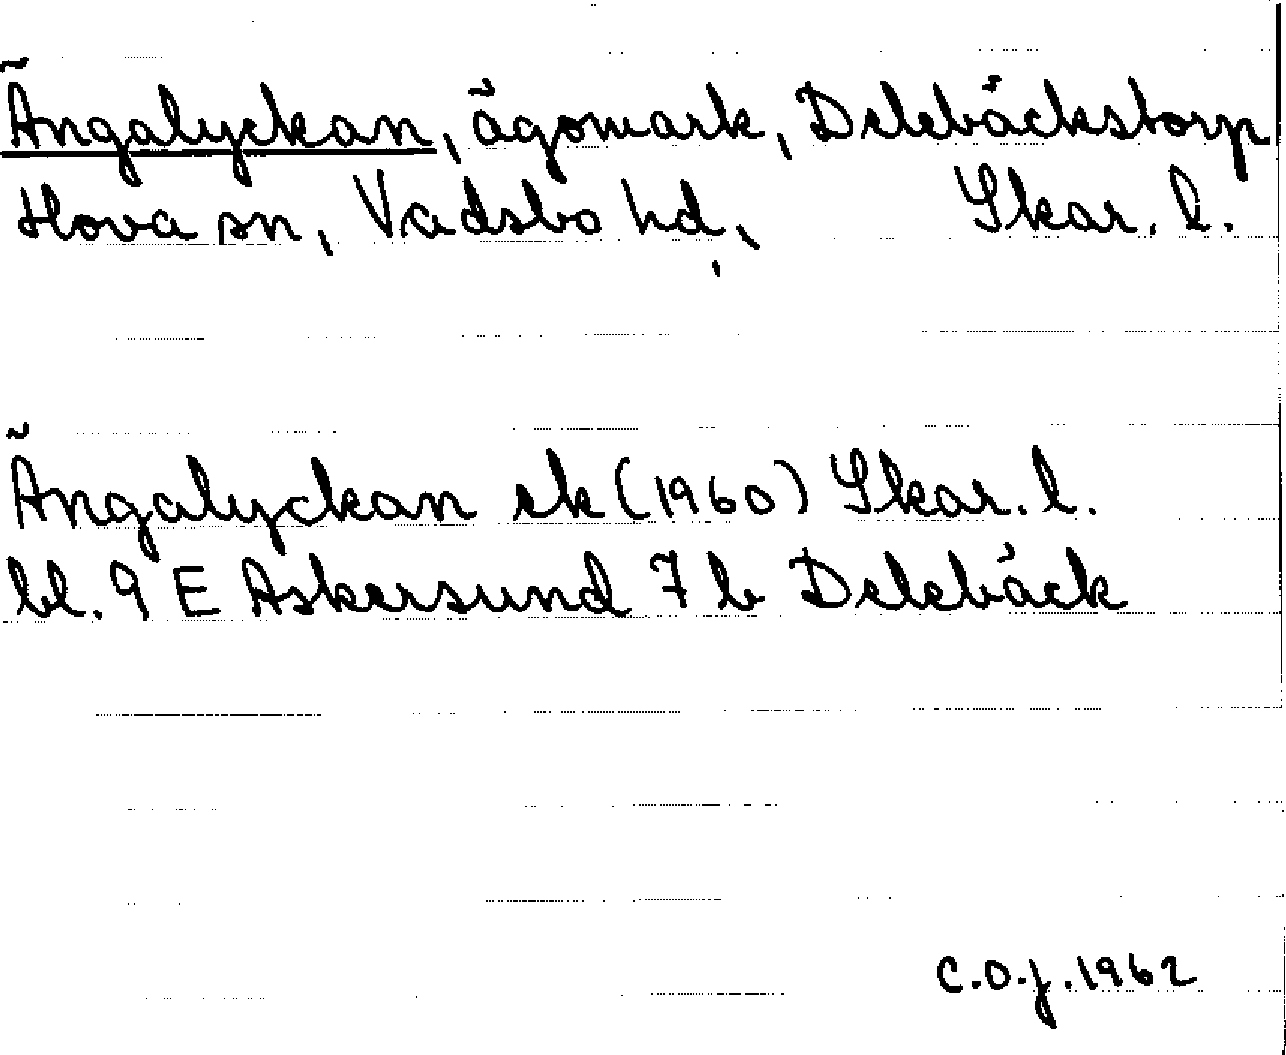 Ängalyckan, ägomark, Delebäckstorp
Hova sn, Vadsbo hd, Skar. l.
Ängalyckan ek (1960) Skar. l.
bl. 9 E Askersund 7 b Delebäck
C.O.J. 1962